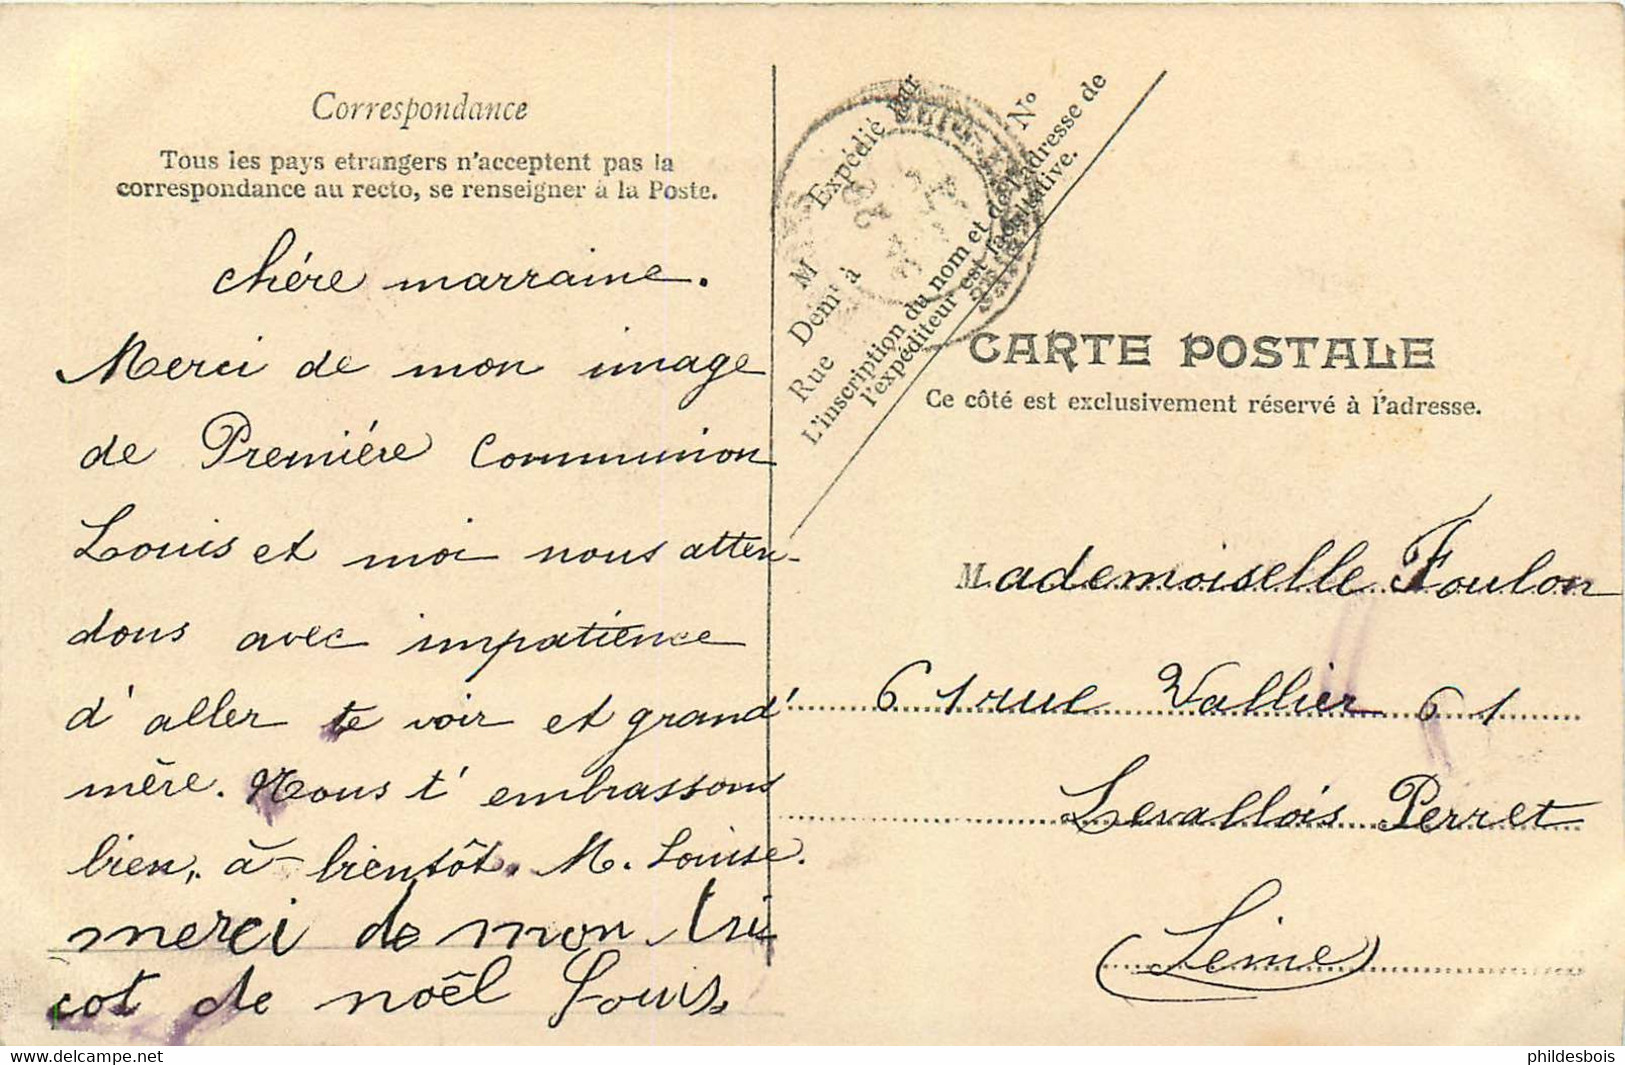 Correspondance
Tous les pays etrangers n'acceptent pas la
correspondance au recto, se renseigner à la Poste.
chére marraine.
Merci de mon image
de Premiére Communion
Louis et moi nous atten-
dons avec impatience
d'aller te voir et grand'
mère. Nous t'embrassons
bien, à bientôt. M. Louise.
merci de mon tri
cot de noêl Louis
Expédié par
M
Demt à
Rue
No
L'inscription du nom et de l'adresse de
l'expéditeur est facultative.
CARTE POSTALE
Ce côté est exclusivement réservé à l'adresse.
Mademoiselle Foulon
61 rue Vallier 61
Levallois Perret
(Seine)
https://www.delcampe.net
phildesbois